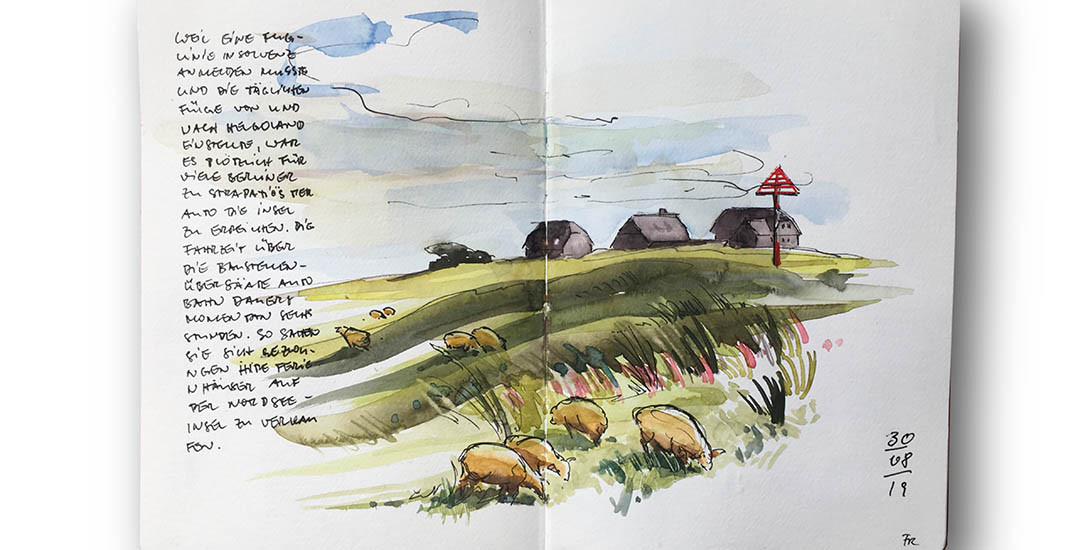 WEIL EINE FLUG-
LINIE INSOLVENZ
ANMELDEN MUSSTE
UND DIE TÄGLICHEN
FLÜGE VON UND
NACH HELGOLAND
EINSTELLTE, WAR
ES PLÖTZLICH FÜR
VIELE BERLINER
ZU STRAPAZIÖS PER
AUTO DIE INSEL
ZU ERREICHEN. DIE
FAHRZEIT ÜBER
DIE BAUSTELLEN-
ÜBERSÄTE AUTO
BAHN DAUERT
MOMENTAN SECHS
STUNDEN. SO SAHEN
SIE SICH GEZWU-
NGEN IHRE FERIE
NHÄUSER AUF
DER NORDSEE-
INSEL ZU VERKAU
FEN.
30
08
19
FR